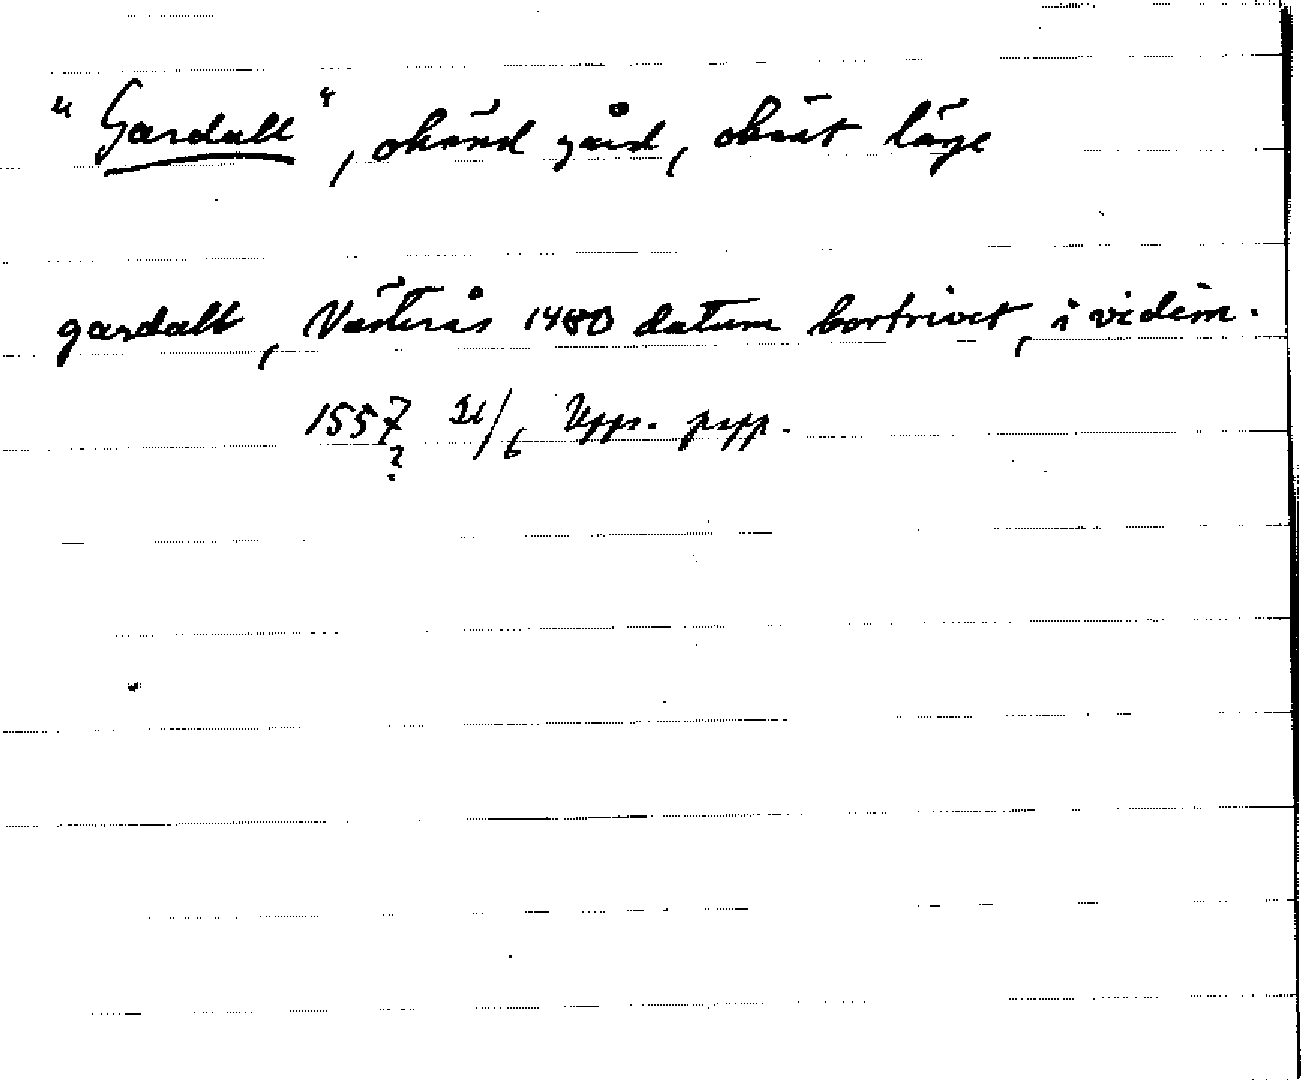 "Gardalt", okänd gård, okänt läge
gardalt, Västerås 1480 datum bortrivet, i vidim.
1557 /6 Upps. papp.
?